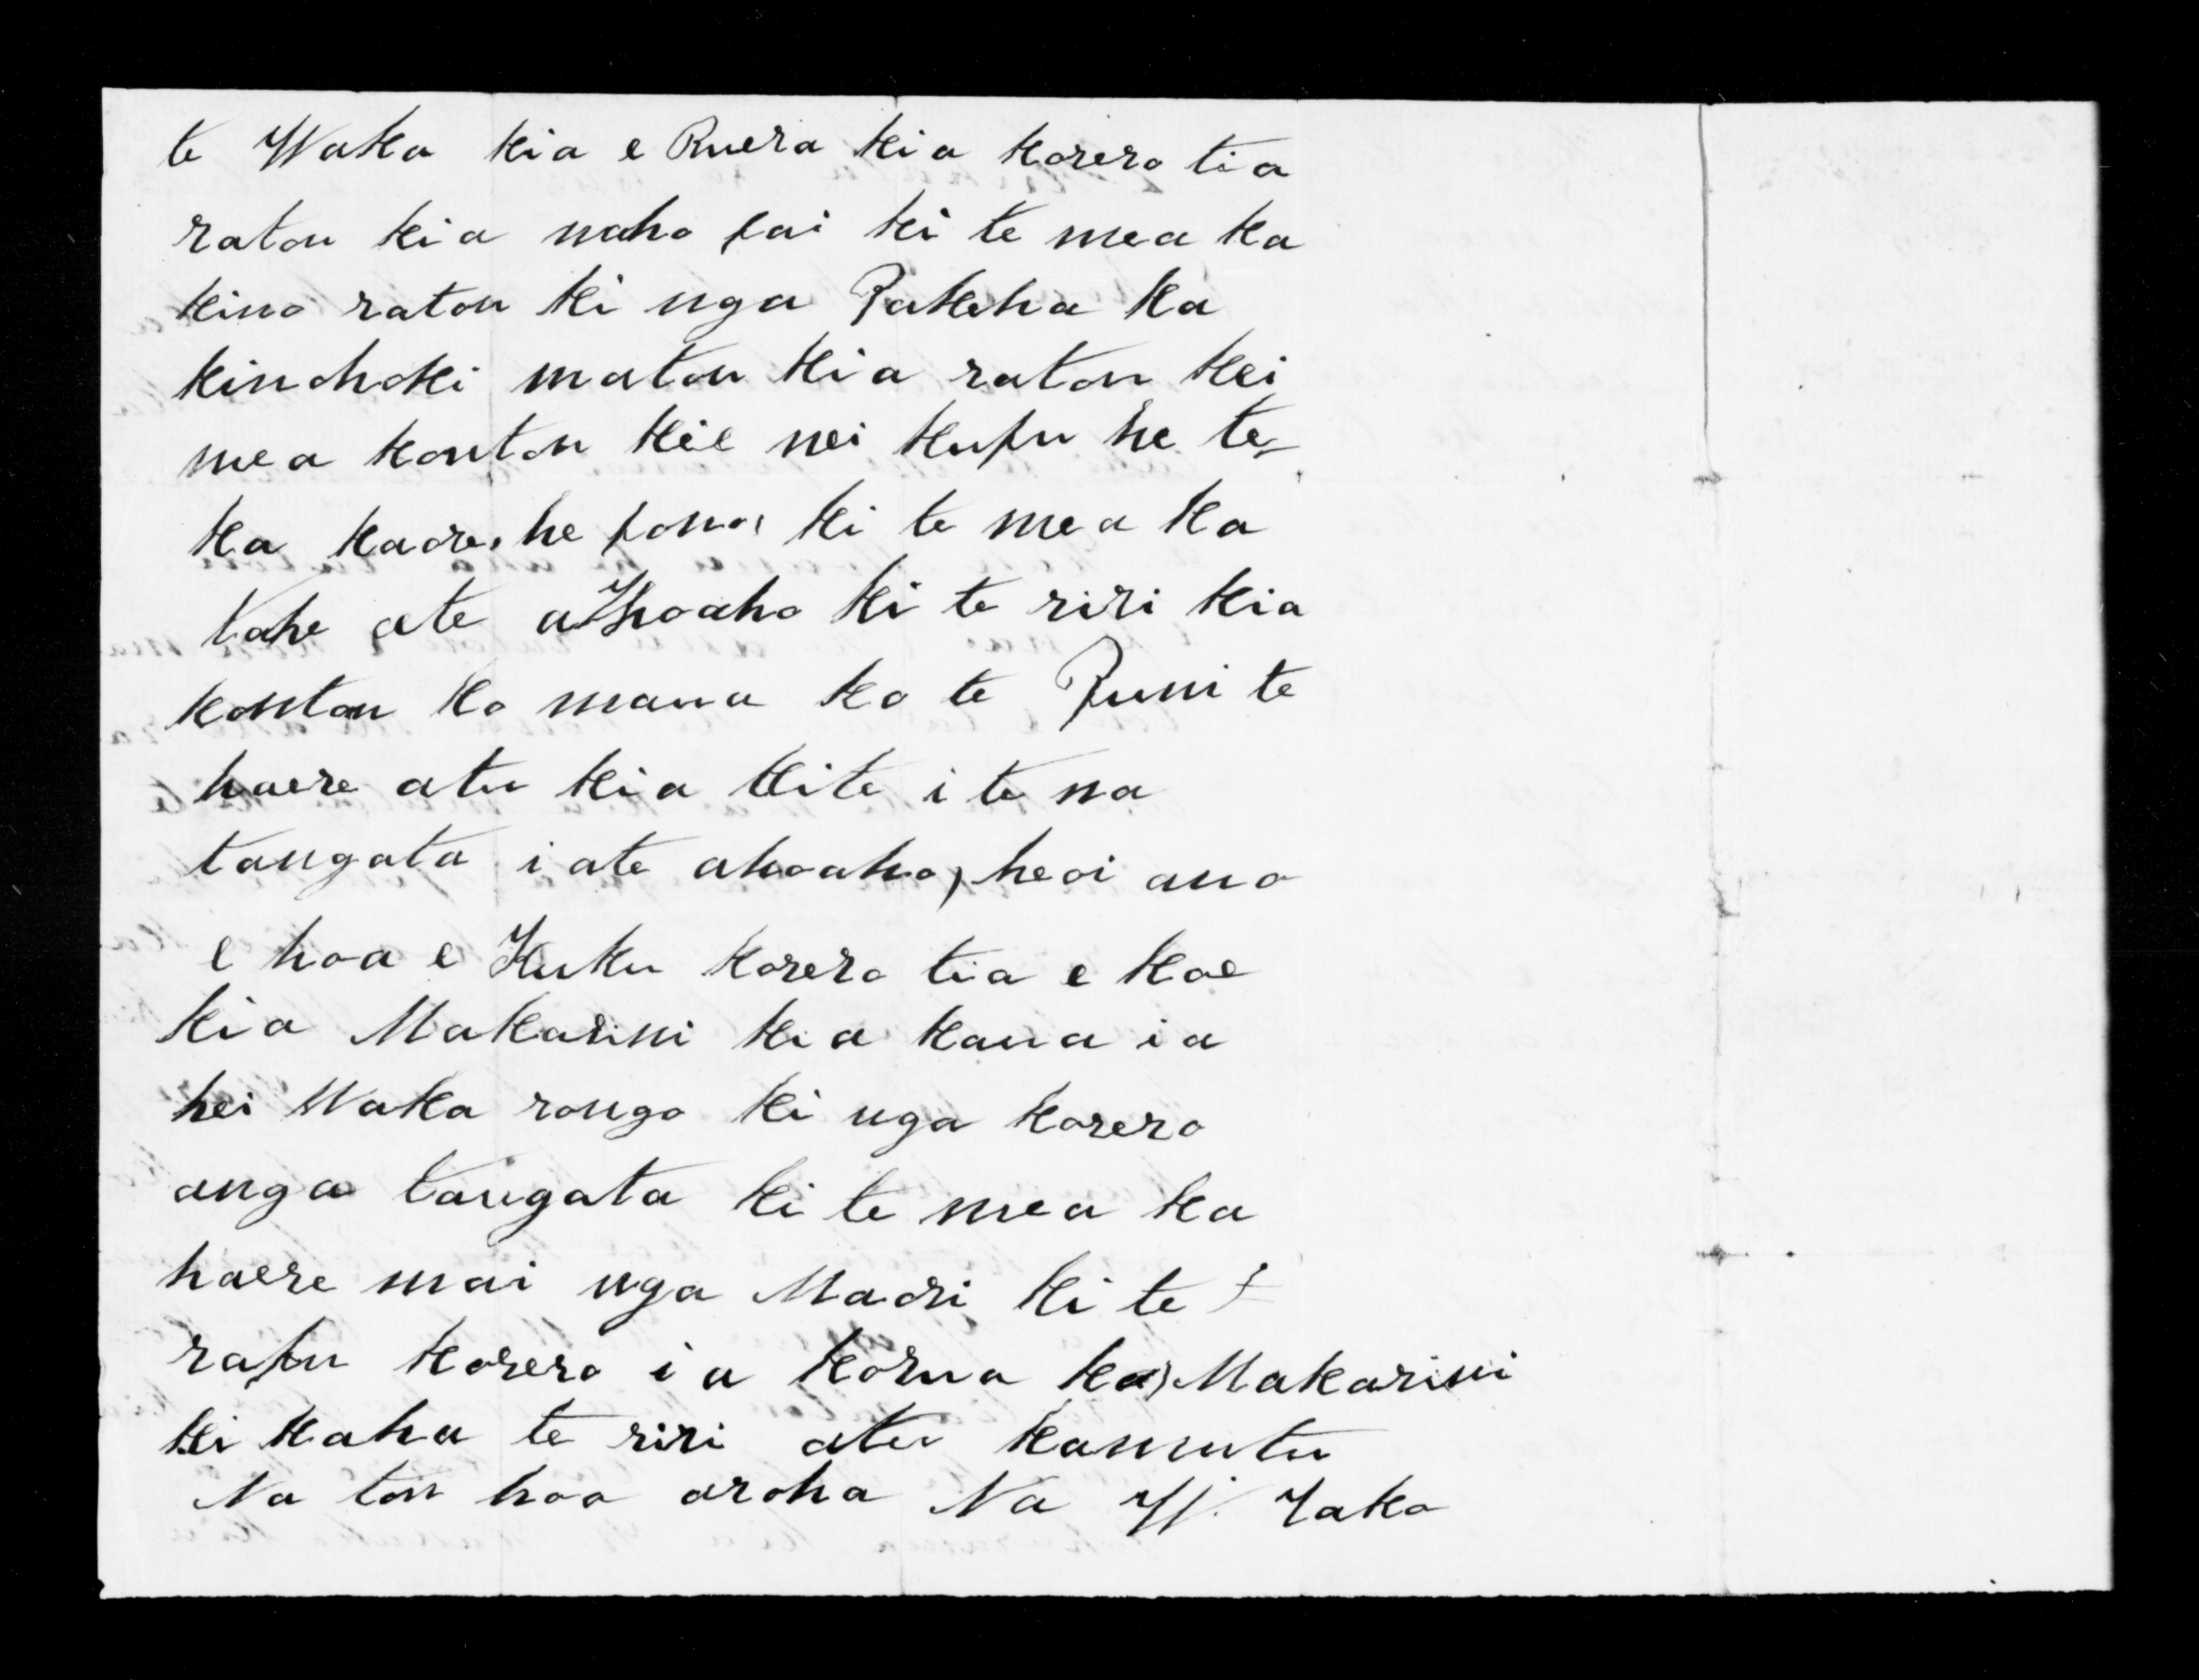 te Waka kia e Ruera kia korero tia
ratou kia noho pai ki te mea ka
kino ratou ki nga Pakeha ka
kinohoki matou kia ratou kei
mea koutou kiē nei kupu he te-
ka kaore, he pono, ki te mea ka
tahe ate ahoaho ki te riri kia
koutou ko mana ko te Puni te
haere atu kia kite i te na
tangata i ate ahoaho, heoi ano
e hoa e Kuku korero tia e koe
kia Makarini kia kaua ia
hei Waka rongo ki nga korero
anga tangata ki te mea ka
haere mai nga Maori ki te
rapu korero i a korua ko, Makarini
ki kaha te riri atu kamutu
Na tou hoa aroha Na